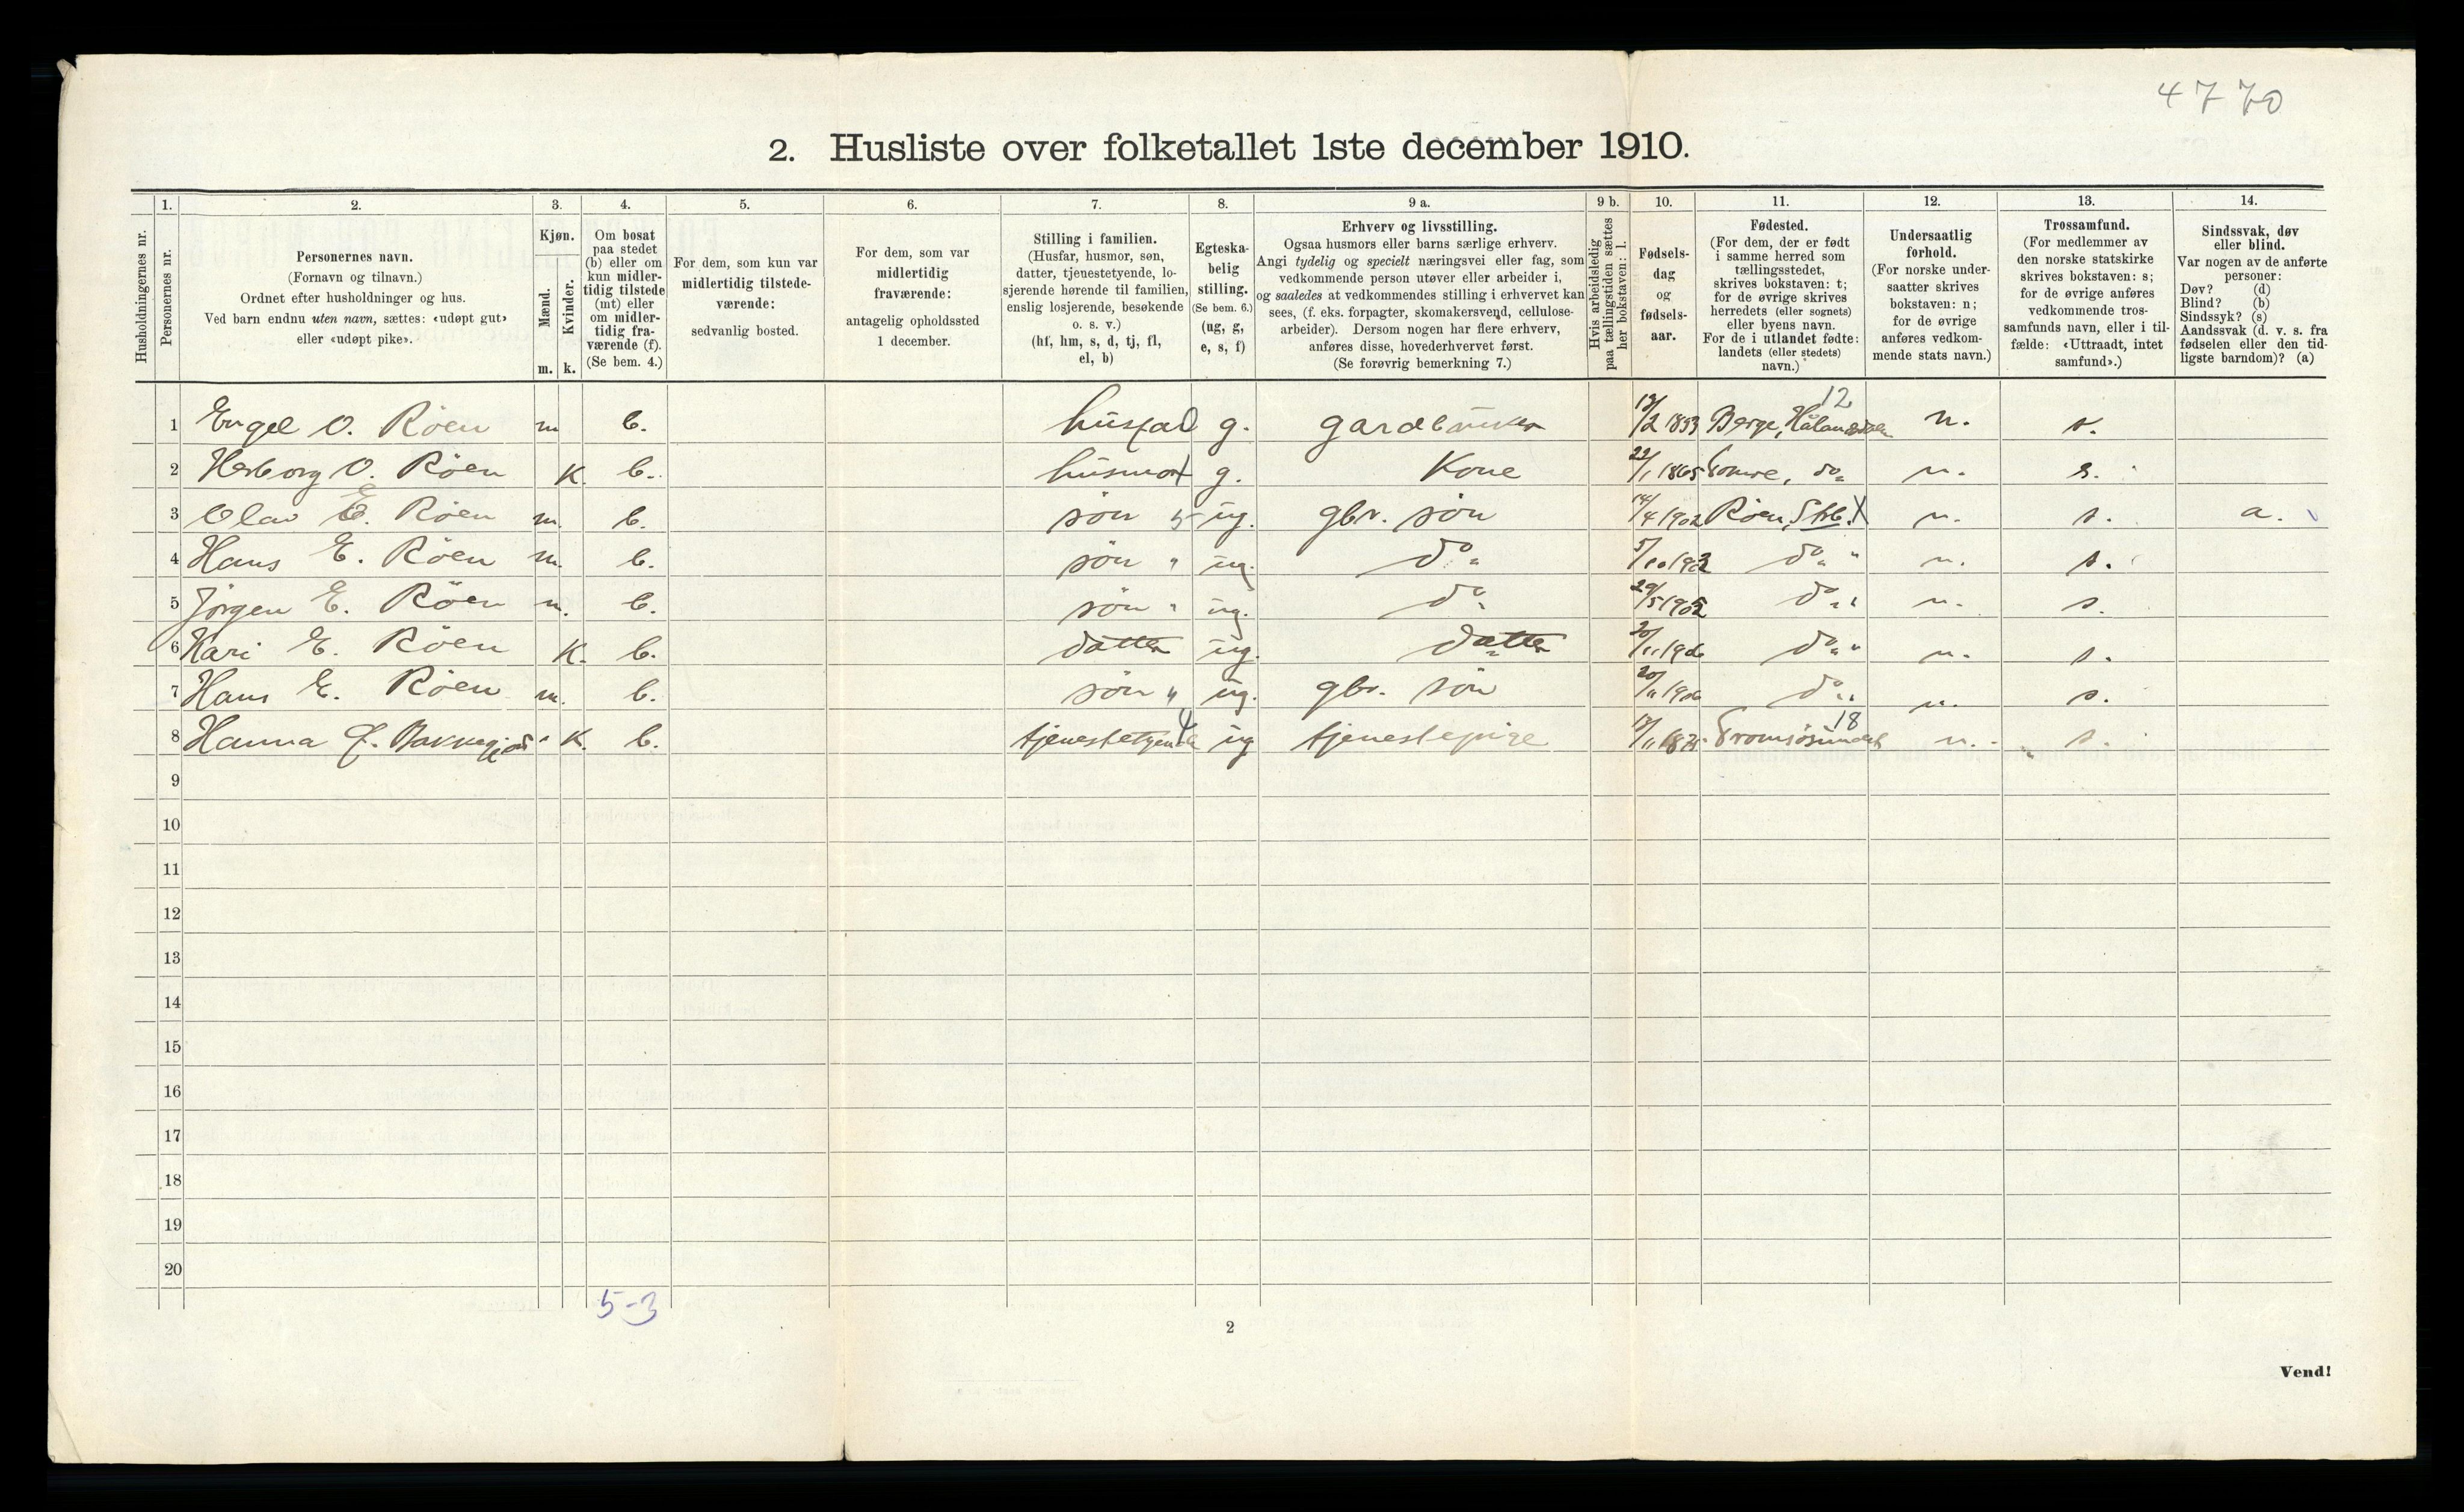 4770
2. Husliste over folketallet 1ste december 1910.
Husholdningernes nr.
1. Personernes nr.
2. Personernes navn.
(Fornavn og tilnavn.)
Ordnet efter husholdninger og hus.
Ved barn endnu uten navn, sættes: «udøpt gut»
eller «udøpt pike».
3. Kjøn.
Mænd. Kvinder.
m. k.
4. Om bosat
paa stedet
(b) eller om
kun midler-
tidig tilstede
(mt) eller
om midler-
tidig fra-
værende (f).
(Se bem. 4.)
5. For dem, som kun var
midlertidig tilstede-
værende:
sedvanlig bosted.
6. For dem, som var
midlertidig
fraværende:
antagelig opholdssted
1 december.
7. Stilling i familien.
(Husfar, husmor, søn,
datter, tjenestetyende, lo-
sjerende hørende til familien,
enslig losjerende, besøkende
o. s. v.)
(hf, hm, s, d, tj, fl,
el, b)
8. Egteska-
belig
stilling.
(Se bem. 6.)
(ug, g,
e, s, f)
9 a. Erhverv og livsstilling.
Ogsaa husmors eller barns særlige erhverv.
Angi tydelig og specielt næringsvei eller fag, som
vedkommende person utøver eller arbeider i,
og saaledes at vedkommendes stilling i erhvervet kan
sees, (f. eks. forpagter, skomakersvend, cellulose-
arbeider). Dersom nogen har flere erhverv,
anføres disse, hovederhvervet først.
(Se forøvrig bemerkning 7.)
9 b. Hvis arbeidsledig
paa tællingstiden sættes
her bokstaven: l.
10. Fødsels-
dag
og
fødsels-
aar.
11. Fødested.
(For dem, der er født
i samme herred som
tællingsstedet,
skrives bokstaven: t;
for de øvrige skrives
herredets (eller sognets)
eller byens navn.
For de i utlandet fødte:
landets (eller stedets)
navn.)
12. Undersaatlig
forhold.
(For norske under-
saatter skrives
bokstaven: n;
for de øvrige
anføres vedkom-
mende stats navn.)
13. Trossamfund.
(For medlemmer av
den norske statskirke
skrives bokstaven: s;
for de øvrige anføres
vedkommende tros-
samfunds navn, eller i til-
fælde: «Uttraadt, intet
samfund».)
14. Sindssvak, døv
eller blind.
Var nogen av de anførte
personer:
Døv? (d)
Blind? (b)
Sindssyk? (s)
Aandssvak (d. v. s. fra
fødselen eller den tid-
ligste barndom)? (a)
12
1 Engel O. Röen m b. husfad g. gardbruker Berge, n. s.
2 Herborg O. Röen K. b. husmor g. Kone 22/1 1865 do n. s.
3 Olav E. Röen m. b. søn ug. gbr. søn 14/4 1902 Röen, n. s. a.
4 Hans E. Röen m. b. søn " ug. do " do " n. s.
5 Jørgen E. Röen m. b. søn " ug. do " do " n. s.
6 Kari E. Röen K. b. datter ug. datter 20/11 1906 do " n. s.
7 Hans E. Röen m. b. søn " ug. gbr. søn 20/11 1906 do " n. s.
18
8 Hanna K. b. tjenestetyende ug tjenestepige Tromsösundet n. s.
9
10
11
12
13
14
15
16
17
18
19
20
5-3
2
Vend!